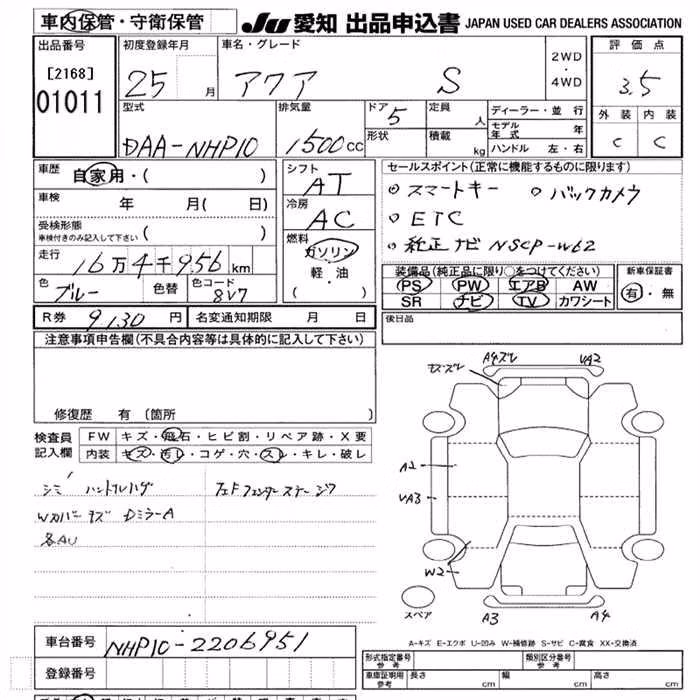 車内保管・守衛保管 JU 愛知 出品申込書 JAPAN USED CAR DEALERS ASSOCIATION
出品番号 初度登録年月 車名・グレード 2WD・4WD 評価点
[2168] 25 月 アクア S 3.5
01011
型式 排気量 ドア 5 定員 人 ディーラー・並行 外装 内装
DAA-NHP10 1500 CC 形状 積載 kg モデル年式 年 C C
ハンドル 左・右
車歴 自家用・( ) シフト AT セールスポイント(正常に機能するものに限ります)
車検 年 月( 日) 冷房 AC スマートキー バックカメラ
受検形態 車検付きのみ記入して下さい ( ) ETC
走行 16万4千956km 燃料 ガソリン 軽・油 ( ) 純正ナビ NSCP-W62
色 ブルー 色替 色コード 8V7 装備品(純正品に限り○をつけてください) 新車保証書
PS PW エアB AW 有・無
SR ナビ TV カワシート
R券 9,130 円 名変通知期限 月 日 後日品
注意事項申告欄(不具合内容等は具体的に記入して下さい)
修復歴 有 〔箇所 〕
検査員記入欄 FW キズ・飛石・ヒビ割・リペア跡・X要
内装 キズ・汚レ・コゲ・穴・スレ・キレ・破レ
シミ ハンドルハゲ
Wカバーキズ DミラーA
各AU
A4ズレ UA2
A2
UA3
W2
スペア A3 A4
A-キズ E-エクボ U-凹み W-補修跡 S-サビ C-腐食 XX-交換済
車台番号 NHP10-2206951
登録番号
形式指定番号 参考 類別区分番号 参考
車庫証明用 参考 長さ cm 幅 cm 高さ cm